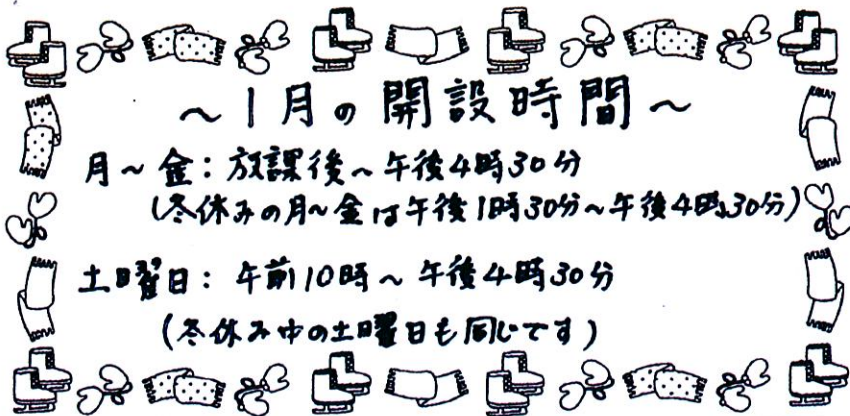 ～1月の開設時間～
月～金：放課後～午後4時30分
（冬休みの月～金は午後1時30分～午後4時30分）
土曜日：午前10時～午後4時30分
（冬休み中の土曜日も同じです）